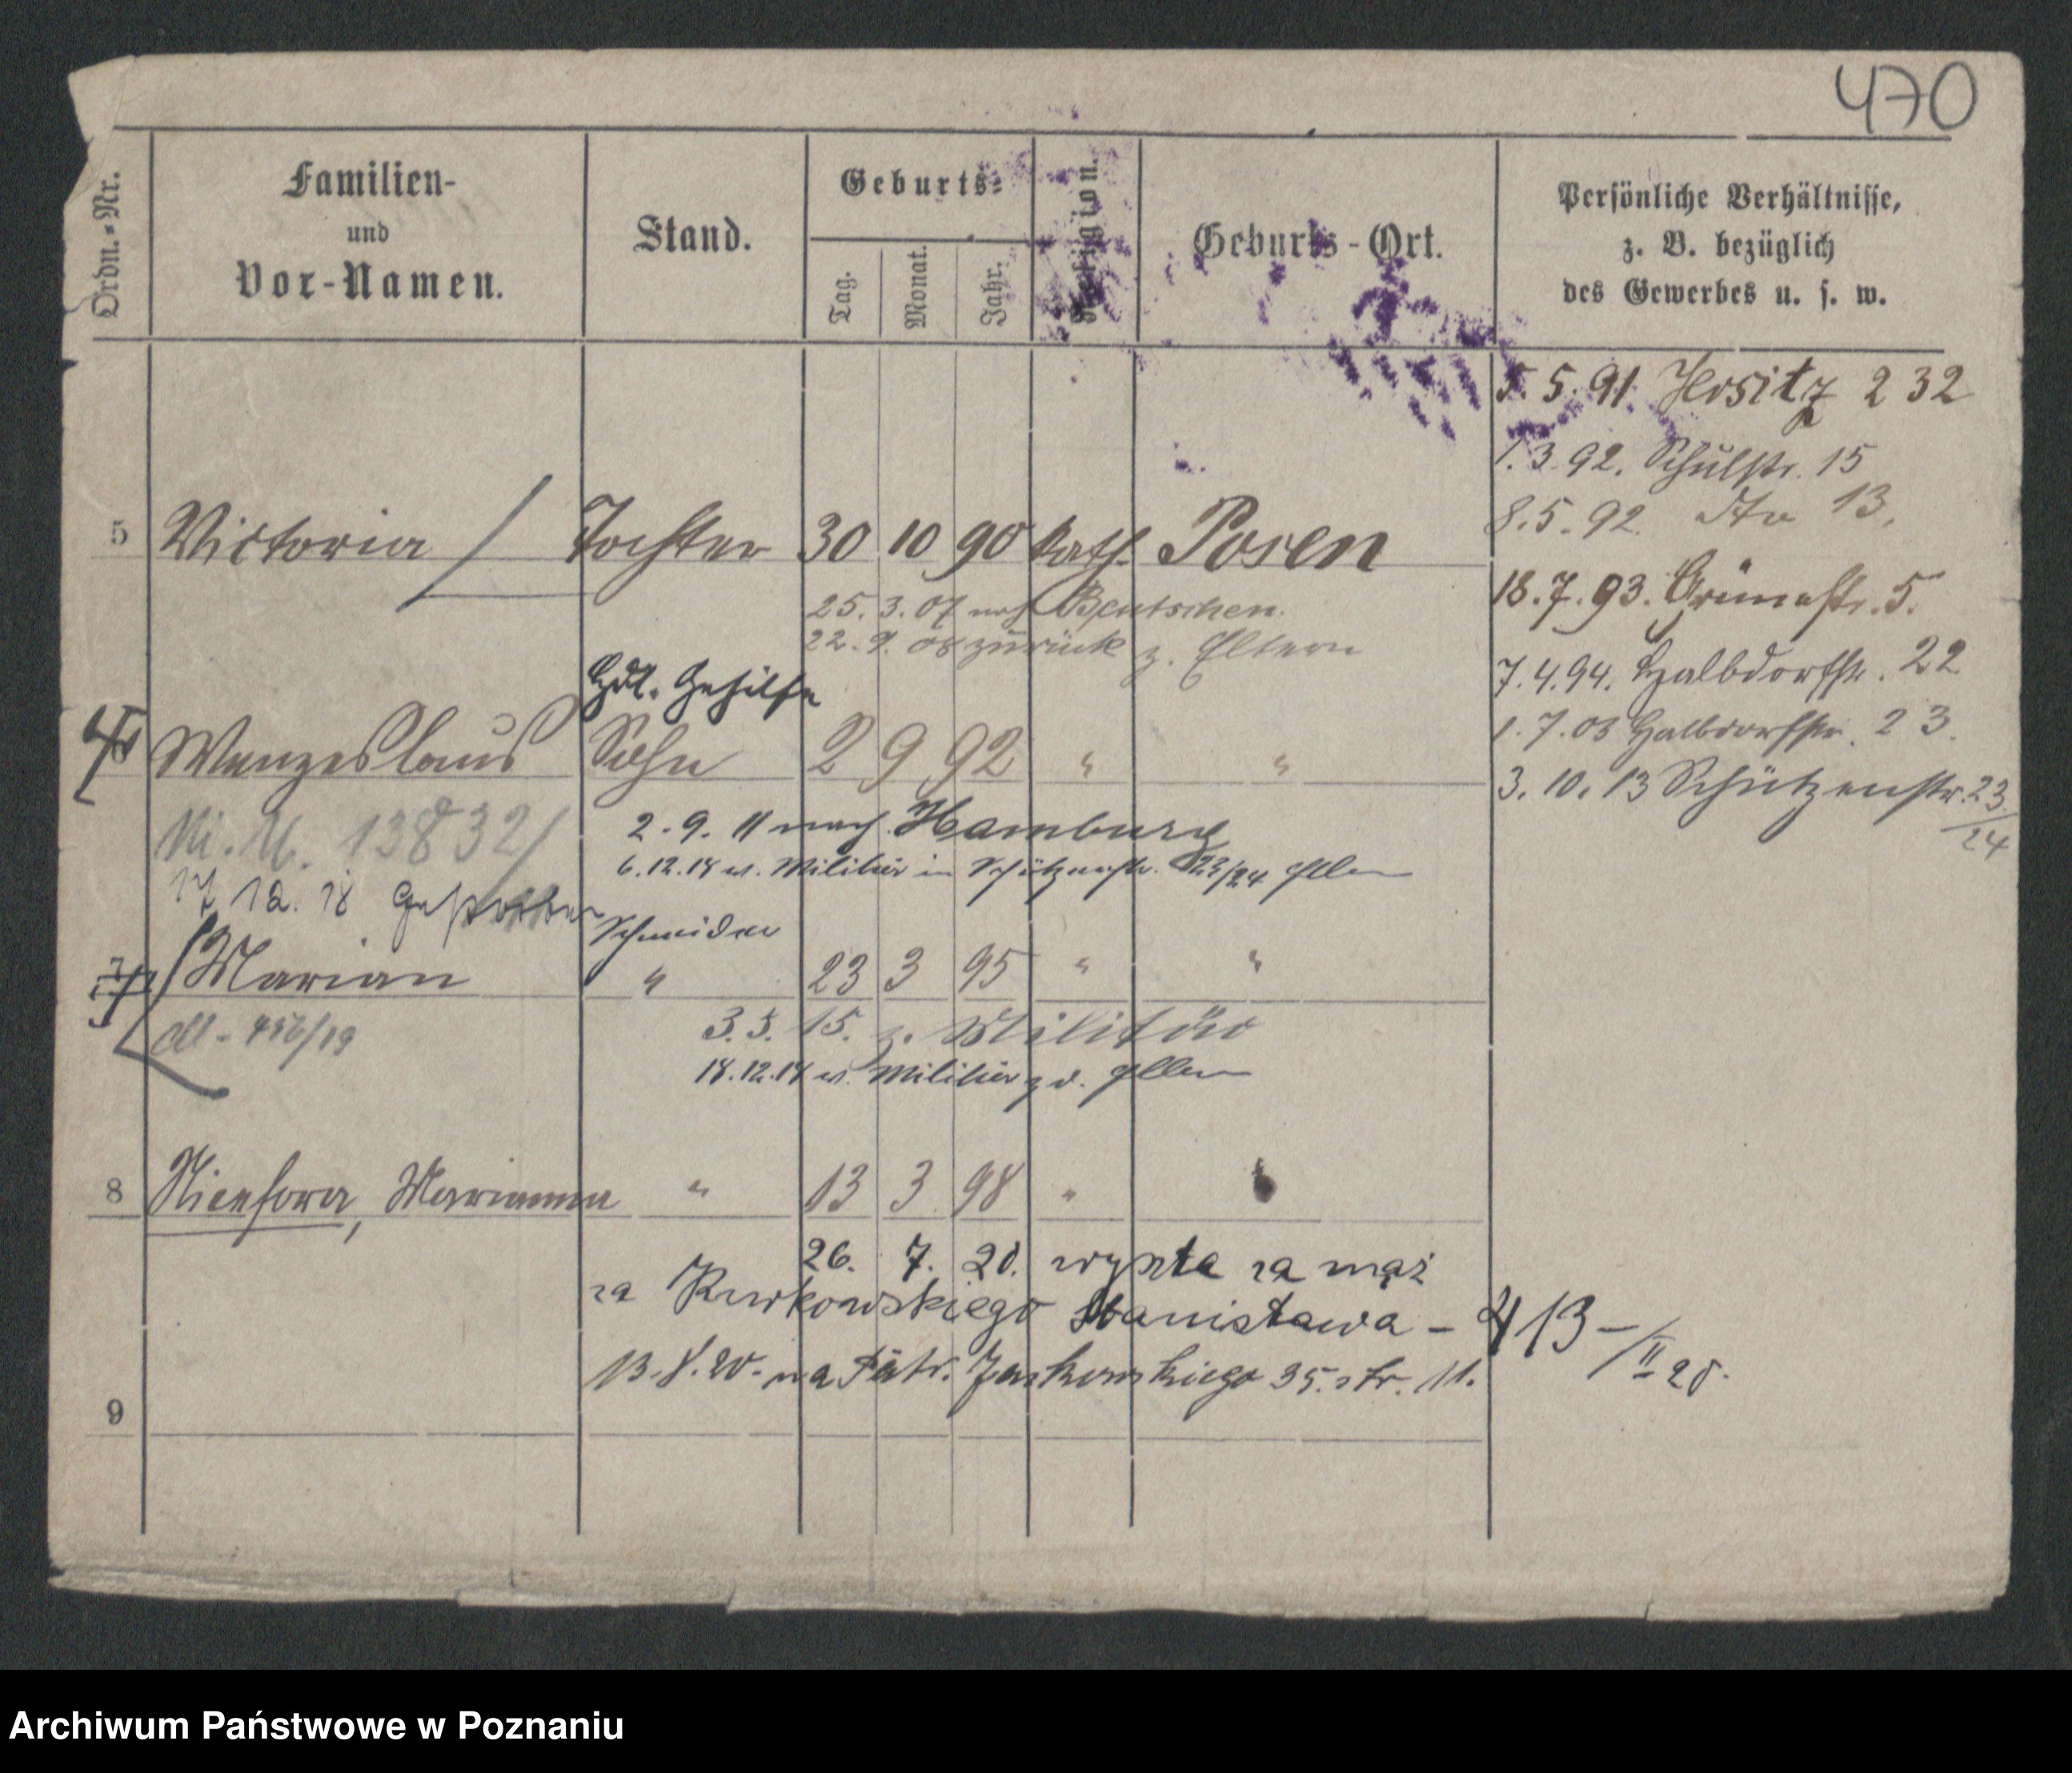 470
Ordn.-Nr.
Familien-
und
Vor-Namen.
Stand.
Geburts-
Tag.
Monat.
Jahr.
Religion.
Geburts-Ort.
Persönliche Verhältnisse,
z. B. bezüglich
des Gewerbes u. s. w.
5.5.91 Jersitz 232
1.3.92. Schulstr. 15
8.5.92. dto 13.
18.7.93. Grünestr. 5.
7.4.94. Halbdorfstr. 22
1.7.03 Halbdorfstr. 23.
3.10.13 Schützenstr. 23/24
5 Victoria Tochter 30 10 90 kath. Posen
25.3.07 nach Bentschen.
22.9.08 zurück z. Eltern
Hdl. Gehilfe
Wenzeslaus Sohn 2 9 92 " "
13832
2.9.11 nach Hamburg
6.12.18 v. Militär in Schützenstr. 23/24 Eltern
17 12. 18 Gestorben
Schneider
7 Marian " 23 3 95 " "
3.5.15. z. Militär
18.12.18 v. Militär z. d. Eltern
8 Marianna " 13 3 98 "
26. 7. 20. wyszła za mąż
za Kurkowskiego Stanisława - 413-/II 28.
13.8.20. na Patr. Jackowskiego 35. str. 11.
9
Archiwum Państwowe w Poznaniu